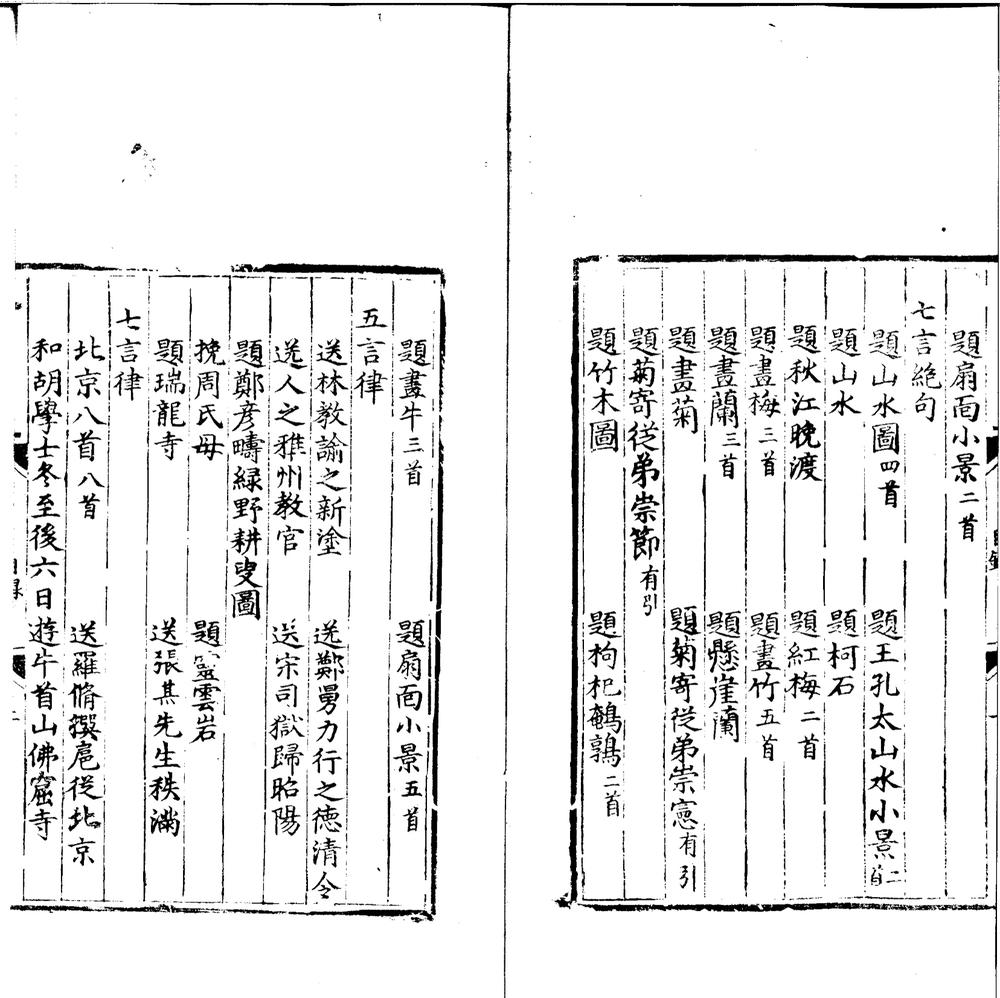 題扇面小景二首
七言絕句
題山水圖四首　題王孔太山水小景二首
題山水　題柯石
題秋江晚渡　題紅梅二首
題畫梅三首　題畫竹五首
題畫蘭三首　題懸崖蘭
題畫菊　題菊寄從弟崇憲有引
題菊寄從弟崇節有引
題竹木圖　題枸杞鵪鶉二首
題畫牛三首　題扇面小景五首
五言律
送林教諭之新塗　送鄭勇力行之德清令
送人之雅州教官　送宋司獄歸昭陽
題鄭彥疇綠野耕叟圖
挽周氏母　題靈雲岩
題瑞龍寺　送張其先生秩滿
七言律
北京八首八首　送羅脩撰扈從北京
和胡學士冬至後六日遊牛首山佛窟寺
目錄